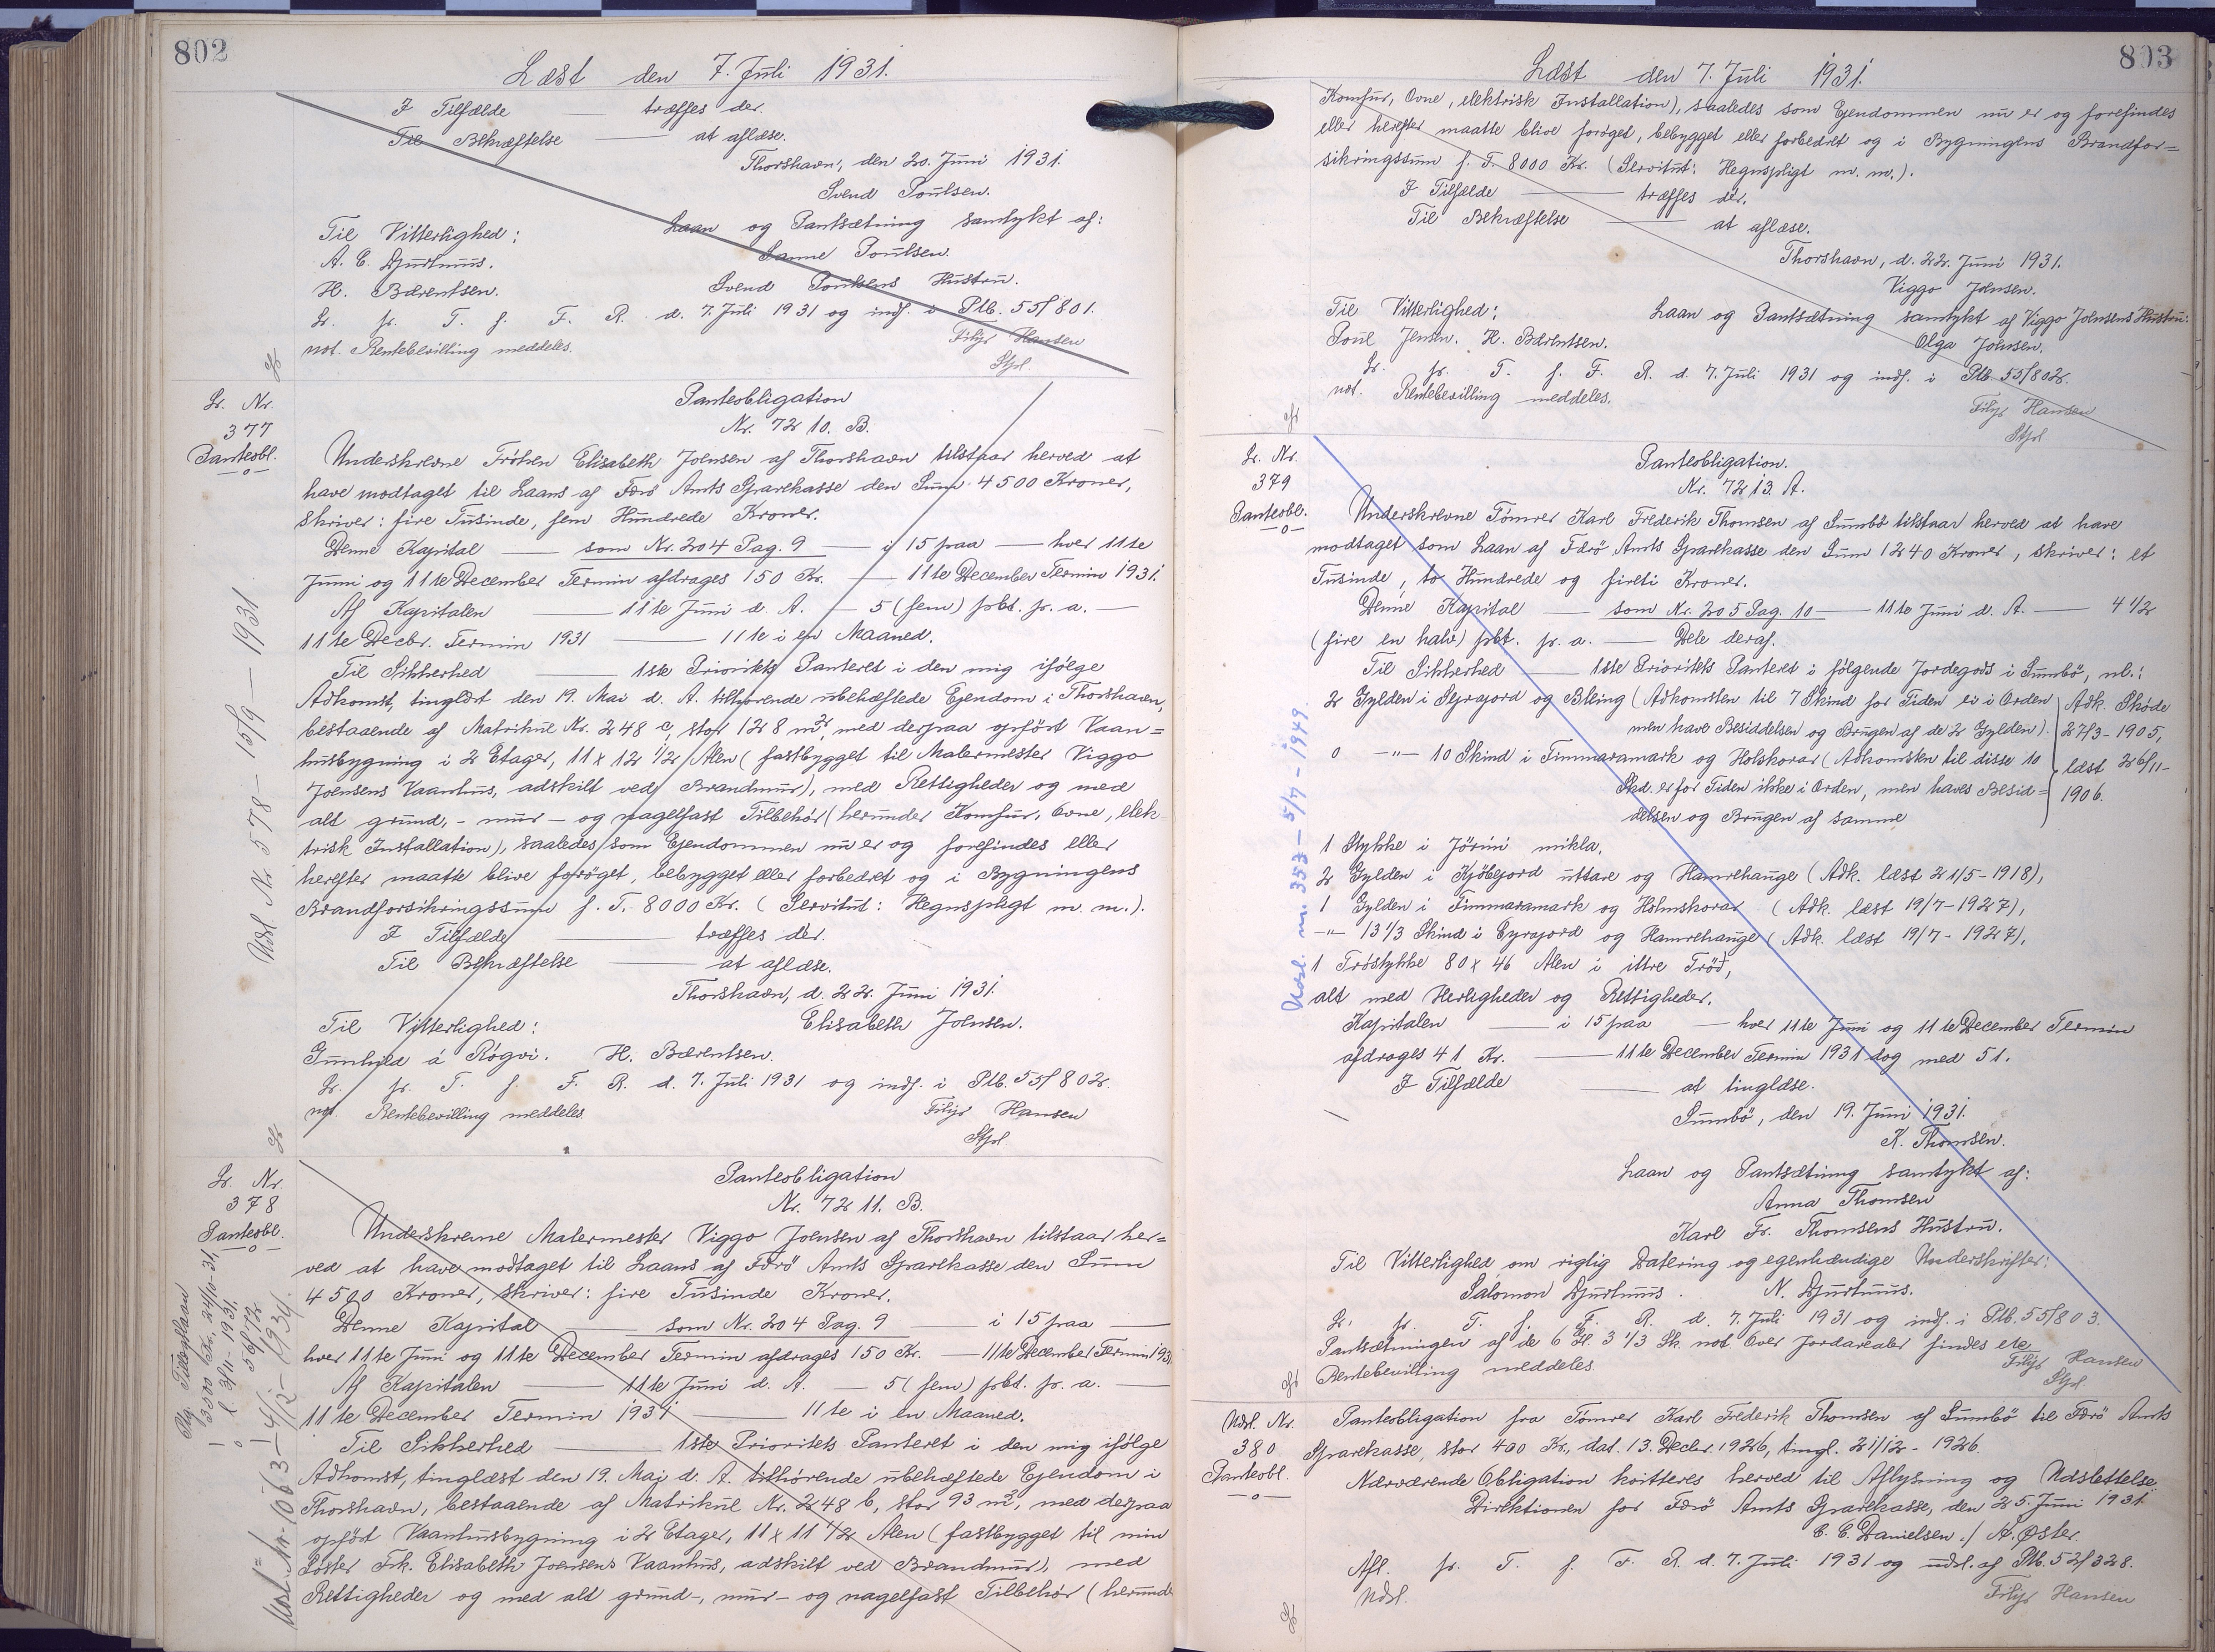 802
Læst den 7. Juli 1931.
I Tilfælde — træffes der.
Til Bekræftelse — at aflæse.
Thorshavn, den 20. Juni 1931.
Svend Poulsen.
Til Vitterlighed: Laan og Pantsætning samtykt af:
A. C. Djurhuus. Sanne Poulsen.
H. Bærentsen. Svend Poulsens Hustru.
Lr. pr. T. f. F. R. d. 7. Juli 1931 og indf. i Ptb. 55/801.
not. Rentebevilling meddeles. Filip Hansen
Stpl
Lr. Nr.
377
Panteobl.
Udsl. Nr 578 — 15/9 — 1931
Panteobligation
Nr. 7210. B.
Underskrevne Frøken Elisabeth Joensen af Thorshavn tilstaar herved at
have modtaget til Laans af Færø Amts Sparekasse den Sum 4500 Kroner,
skriver: fire Tusinde, fem Hundrede Kroner.
Denne Kapital — som Nr. 204 Pag. 9 — i 15 paa — hver 11te
Juni og 11te December Termin afdrages 150 Kr. — 11te December Termin 1931.
Af Kapitalen — 11te Juni d. A. — 5 (fem) pCt. pr. a. —
11te Decbr. Termin 1931 — 11te i en Maaned.
Til Sikkerhed — 1ste Prioritets Panteret i den mig ifølge
Adkomst, tinglæst den 19. Mai d. A. tilhørende ubehæftede Ejendom i Thorshavn,
bestaaende af Matrikul Nr. 248 c, stor 128 m², med derpaa opført Vaan=
husbygning i 2 Etager, 11 x 12 1/2 Alen (fastbygget til Malermester Viggo
Joensens Vaanhus, adskilt ved Brandmur), med Rettigheder og med
alt grund, - mur - og nagelfast Tilbehør (herunder Komfur, Ovne, elek-
trisk Installation), saaledes som Ejendommen nu er og forefindes eller
herefter maatte blive forøget, bebygget eller forbedret og i Bygningens
Brandforsikringssum f. T. 8000 Kr. (Servitut: Hegnspligt m. m.).
I Tilfælde — træffes der.
Til Bekræftelse — at aflæse.
Thorshavn, d. 22. Juni 1931.
Til Vitterlighed: Elisabeth Joensen.
Gunhild á Rógvi. H. Bærentsen.
Lr. pr. T. f. F. R. d. 7. Juli 1931 og indf. i Ptb. 55/802.
not. Rentebevilling meddeles. Filip Hansen
Stpl
Lr. Nr.
378
Panteobl.
3000 Kr., 24/10-31,
l 3/11-1931,
56/72
Udsl. Nr. 1063 — 4/12 — 1934.
Panteobligation
Nr. 7211. B.
Underskrevne Malermester Viggo Joensen af Thorshavn tilstaar her=
ved at have modtaget til Laans af Færø Amts Sparekasse den Sum
4500 Kroner, skriver: fire Tusinde Kroner.
Denne Kapital — som Nr. 204 Pag. 9 — i 15 paa —
hver 11te Juni og 11te December Termin afdrages 150 Kr. — 11te December Termin 1931
Af Kapitalen — 11te Juni d. A. — 5 (fem) pCt. pr. a. —
11te December Termin 1931 — 11te i en Maaned.
Til Sikkerhed — 1ste Prioritets Panteret i den mig ifølge
Adkomst, tinglæst den 19. Maj d. A. tilhørende ubehæftede Ejendom i
Thorshavn, bestaaende af Matrikul Nr. 248 b, stor 93 m², med derpaa
opført Vaanhusbygning i 2 Etager, 11 x 11 1/2 Alen (fastbygget til min
Søster Frk. Elisabeth Joensens Vaanhus, adskilt ved Brandmur), med
Rettigheder og med alt grund-, mur- og nagelfast Tilbehør (herund
803
Læst den 7. Juli 1931.
Komfur, Ovne, elektrisk Installation), saaledes som Ejendommen nu er og forefindes
eller herefter maatte blive forøget, bebygget eller forbedret og i Bygningens Brandfor=
sikringssum f. T. 8000 Kr. (Servitut: Hegnspligt m. m.).
I Tilfælde — træffes der.
Til Bekræftelse — at aflæse.
Thorshavn, d. 22. Juni 1931.
Viggo Joensen.
Til Vitterlighed: Laan og Pantsætning samtykt af Viggo Joensens Hustru:
Poul Jensen. H. Bærentsen. Olga Joensen.
Lr. pr. T. f. F. R. d. 7. Juli 1931 og indf. i Ptb. 55/802.
not. Rentebevilling meddeles. Filip Hansen
Stpl
Lr. Nr.
379
Panteobl.
Udsl. nr. 353 — 5/7 - 1949.
Panteobligation.
Nr. 7213. A.
Underskrevne Tømrer Karl Frederik Thomsen af Sumbø tilstaar herved at have
modtaget som Laan af Færø Amts Sparekasse den Sum 1240 Kroner, skriver: et
Tusinde, to Hundrede og fireti Kroner.
Denne Kapital — som Nr. 205 Pag. 10 — 11te Juni d. A. — 4 1/2
(fire en halv) pCt. pr. a. — Dele deraf.
Til Sikkerhed — 1ste Prioritets Panteret i følgende Jordegods i Sumbø, nl.:
2 Gylden i Syrajord og Bling (Adkomsten til 7 Skind for Tiden ei i Orden Adk. Skøde
men have Besiddelsen og Brugen af de 2 Gylden). 27/3-1905,
0 —"— 10 Skind i Timmaramark og Holskorar (Adkomsten til disse 10 læst 26/11-
Skd. er for Tiden ikke i Orden, men haves Besid= 1906.
delsen og Brugen af samme
1 Stykke i Jørini mikla,
2 Gylden i Kjøbejord uttare og Hamrehauge (Adk. læst 21/5-1918),
1 Gylden i Timmaramark og Holmskorar (Adk. læst 19/7-1927),
—"— 13 1/3 Skind i Eyrajord og Hamrehauge (Adk. læst 19/7-1927),
1 Trøstykke 80 x 46 Alen i ittre Trøð,
alt med Herligheder og Rettigheder.
Kapitalen — i 15 paa — hver 11te Juni og 11te December Termin
afdrages 41 Kr. — 11te December Termin 1931 dog med 51.
I Tilfælde — at tinglæse.
Sumbø, den 19. Juni 1931.
K. Thomsen.
Laan og Pantsætning samtykt af:
Anna Thomsen
Karl Fr. Thomsens Hustru.
Til Vitterlighed om rigtig Datering og egenhændige Underskrifter:
Salomon Djurhuus. N. Djurhuus.
Lr. pr. T. f. F. R. d. 7. Juli 1931 og indf. i Ptb. 55/803.
Pantsætningen af de 6 Gl. 3 1/3 Sk. not. Over Jordarealer findes ete
Rentebevilling meddeles. Filip Hansen
Stpl
Udsl. Nr.
380
Panteobl.
Panteobligation fra Tømrer Karl Frederik Thomsen af Sumbø til Færø Amts
Sparekasse, stor 400 Kr., dat. 13. Decbr. 1926, tingl. 21/12-1926.
Nærværende Obligation kvitteres herved til Aflysning og Udslettelse
Direktionen for Færø Amts Sparekasse, den 25. Juni 1931.
C. C. Danielsen. / A. Øster
Afl. pr. T. f. F. R. d. 7. Juli 1931 og udsl. af Ptb. 52/328.
Udsl. Filip Hansen